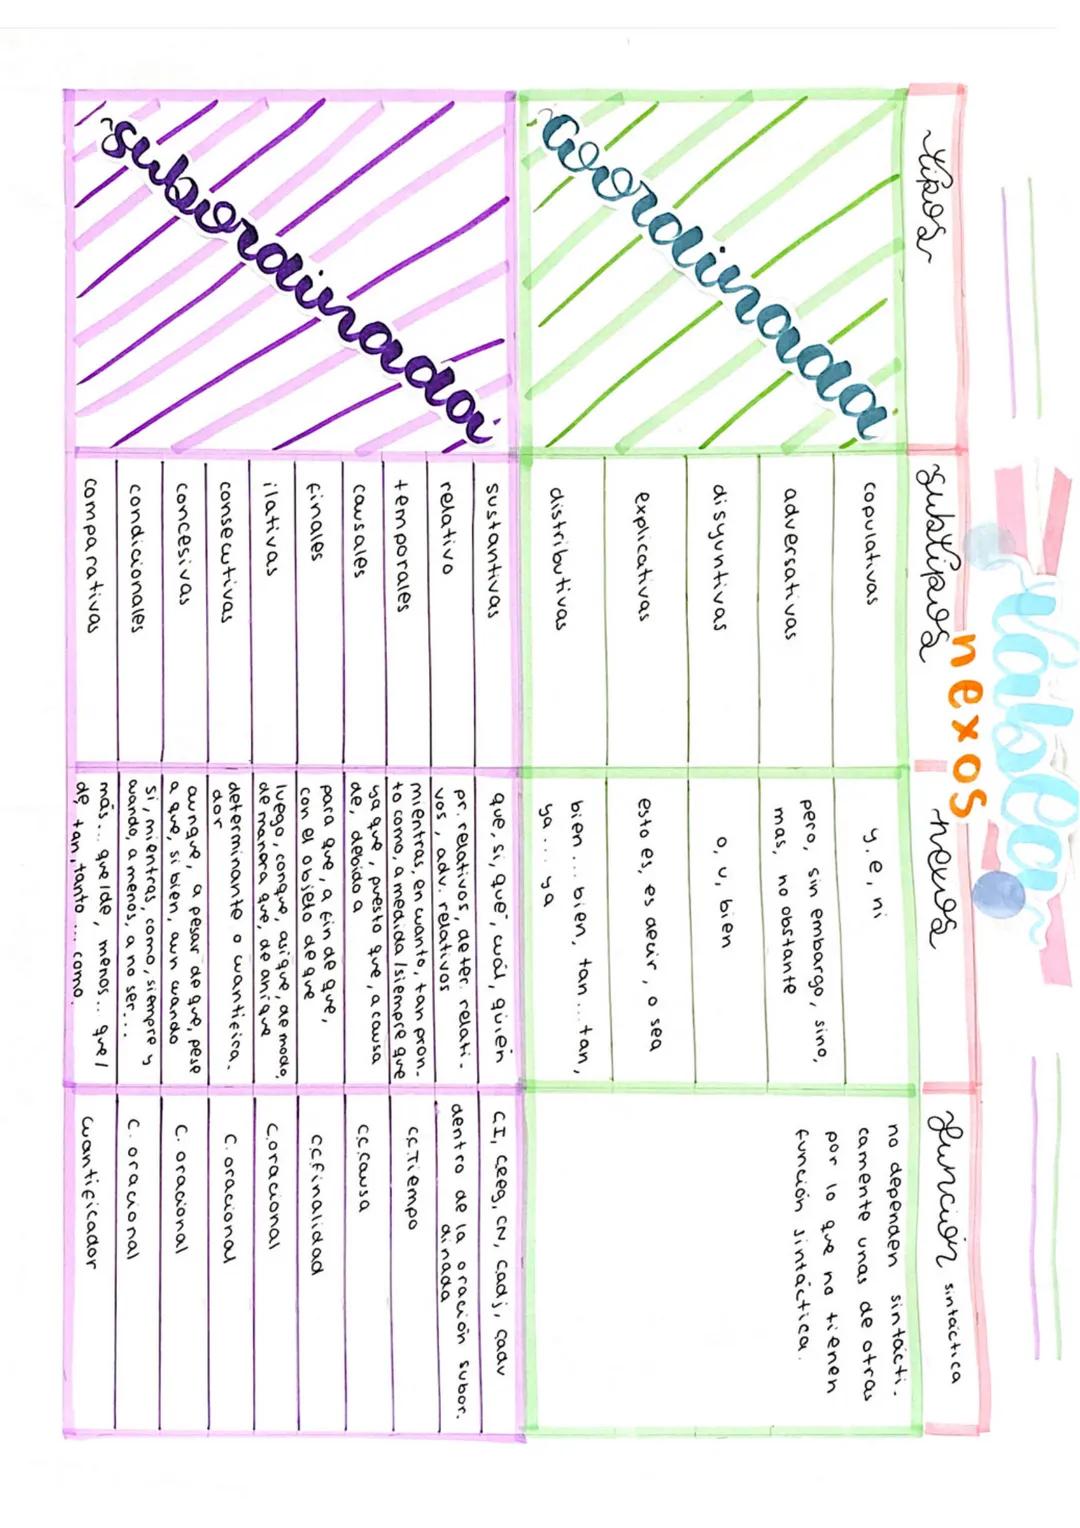 tabla
nexos
tipos
subtipos
nexos
función sintáctica
coordinada
copulativas
y, e, ni
no dependen sintácti-
camente unas de otras
por lo que no tienen
función sintáctica.
adversativas
pero, sin embargo, sino,
mas, no obstante
disyuntivas
o, u, bien
explicativas
esto es, es decir, o sea
distributivas
bien... bien, tan... tan,
ya... ya
subordinada
sustantivas
que, si, qué, cuál, quién
CI, CReg, CN, Cadj, Cadv
relativo
pr. relativos, deter. relati-
vos, adv. relativos
dentro de la oración subor.
dinada
temporales
mientras, en cuanto, tan pron-
to como, a medida/siempre que
cc.Tiempo
causales
ya que, puesto que, a causa
de, debido a
cc.causa
finales
para que, a fin de que,
con el objeto de que
cc.finalidad
ilativas
luego, conque, asique, de modo,
de manera que, de ahí que
c.oracional
consecutivas
determinante o cuantifica.
dor
c. oracional
concesivas
aunque, a pesar de que, pese
a que, si bien, aun cuando
c. oracional
condicionales
si, mientras, como, siempre y
cuando, a menos, a no ser...
c. oracional
comparativas
más... que/de, menos... que/
de, tan, tanto... como.
cuantificador